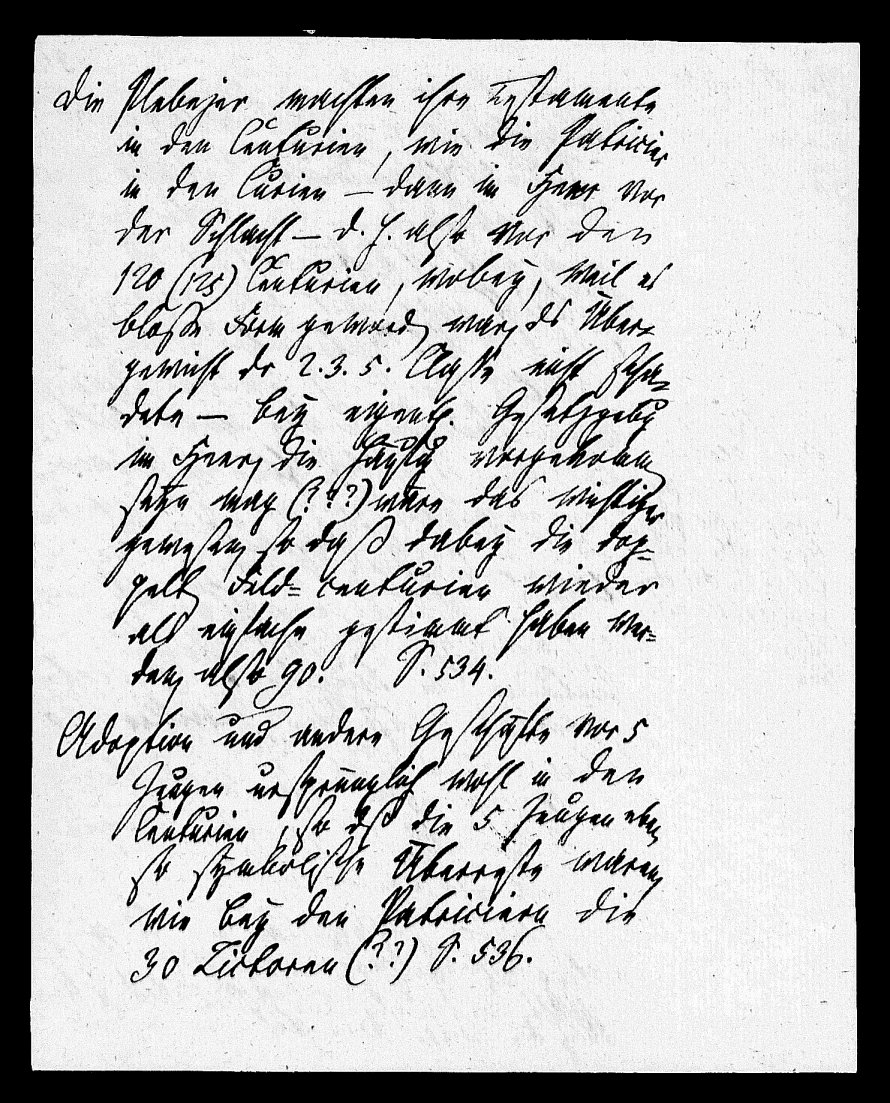 Die Plebejer machten ihre Testamente
in den Centurien, wie die Patricier
in den Curien — dann im Heer vor
der Schlacht — d. h. also vor den
120 (125) Centurien, wobey, weil es
bloße Form geworden war, das Über-
gewicht der 2. 3. 5. Classe nicht scha-
dete — bey eigentl. Gesetzgebung
im Heer, die häufig vorgekommen
seyn mag (???) wäre das wichtiger
gewesen, so daß dabey die dop-
pelten Feld-centurien wieder
als einfache gestimmt haben wer-
den, also 90. S. 534.
Adoption und andere Geschäfte vor 5
Zeugen ursprünglich wohl in den
Centurien, so daß die 5 Zeugen eben
so symbolische Überreste waren,
wie bey den Patriciern die
30 Lictoren (??) S. 536.